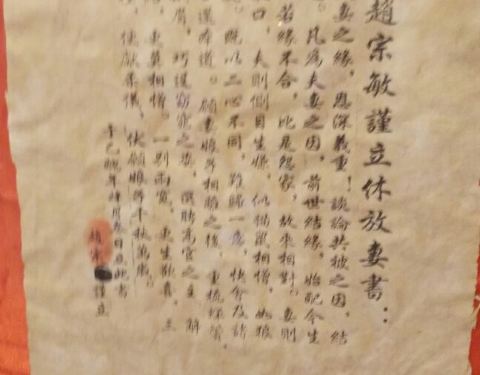 趙宗敏謹立休放妻書：
妻之緣，恩深義重！談論共被之因，結
。凡為夫妻之因，前世結緣，始配今生
若緣不合，比是怨家，故來相對。妻則
口，夫則側目生嫌，似貓鼠相憎，如狼
。既以二心不同，難歸一意，快會及諸
還本道。願妻娘子相離之後，重梳蟬鬢，
眉，巧逞窈窕之姿，選聘高官之主。解
，更莫相憎。一別兩寬，更生歡喜。三
，便獻柔儀。伏願娘子千秋萬歲。
辛巳年月日立此書
趙宗謹立